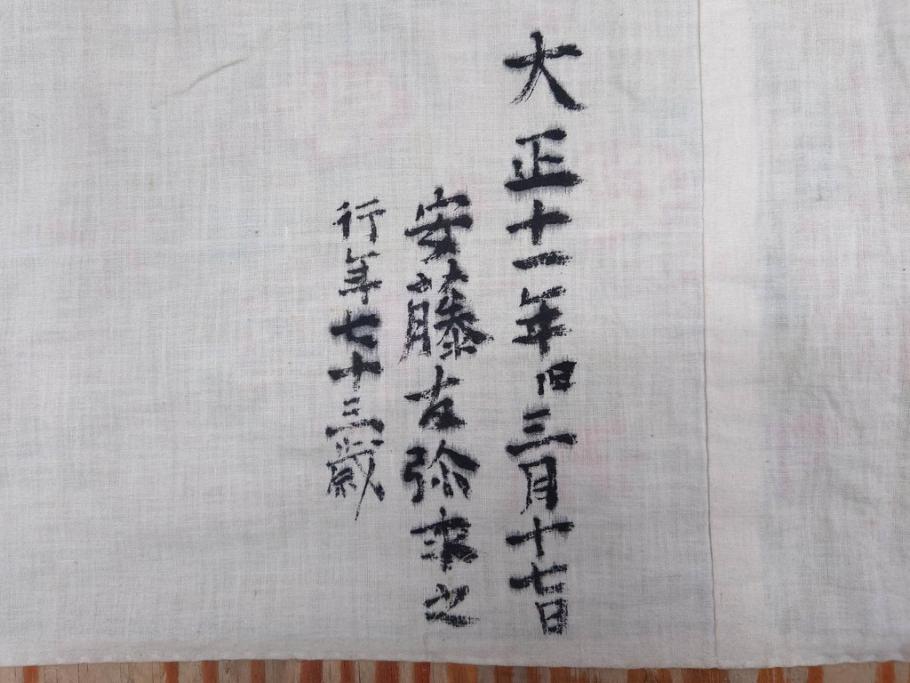 大正十一年旧三月十七日
安藤友弥求之
行年七十三歳